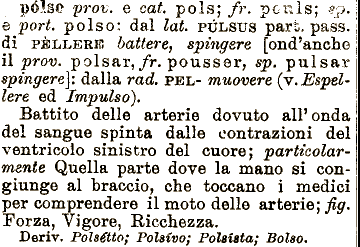 pólso prov. e cat. pols; fr. pouls; sp.
e port. polso: dal lat. PÙLSUS part. pass.
di PÈLLERE battere, spingere [ond'anche
il prov. polsar, fr. pousser, sp. pulsar
spingere]: dalla rad. PEL- muovere (v. Espel-
lere ed Impulso).
Battito delle arterie dovuto all'onda
del sangue spinta dalle contrazioni del
ventricolo sinistro del cuore; particolar-
mente Quella parte dove la mano si con-
giunge al braccio, che toccano i medici
per comprendere il moto delle arterie; fig.
Forza, Vigore, Ricchezza.
Deriv. Polsétto; Polsívo; Polsísta; Bolso.